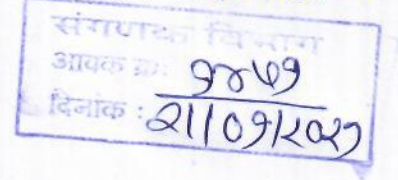 संगणक विभाग
आवक क्र: १४५१
दिनांक : २१/०१/२०२१